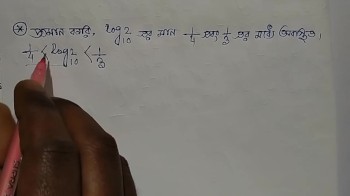 * প্রমাণ করি, log₁₀2 এর মান 1/4 এবং 1/3 এর মধ্যে অবস্থিত।
1/4 < log₁₀2 < 1/3